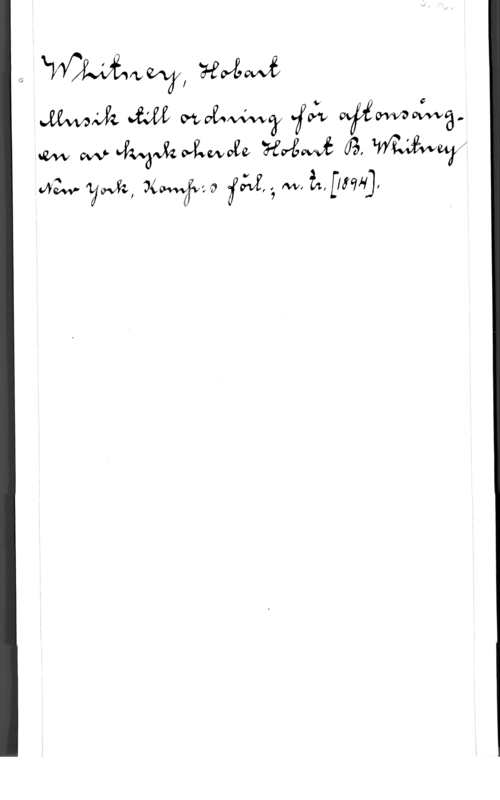 Whitney, Hobart
Musik till ordning för aftonsång-
en av kyrkoherde Hobart B. Whitney
New York, Komp:s förl.; u. år. [1894].